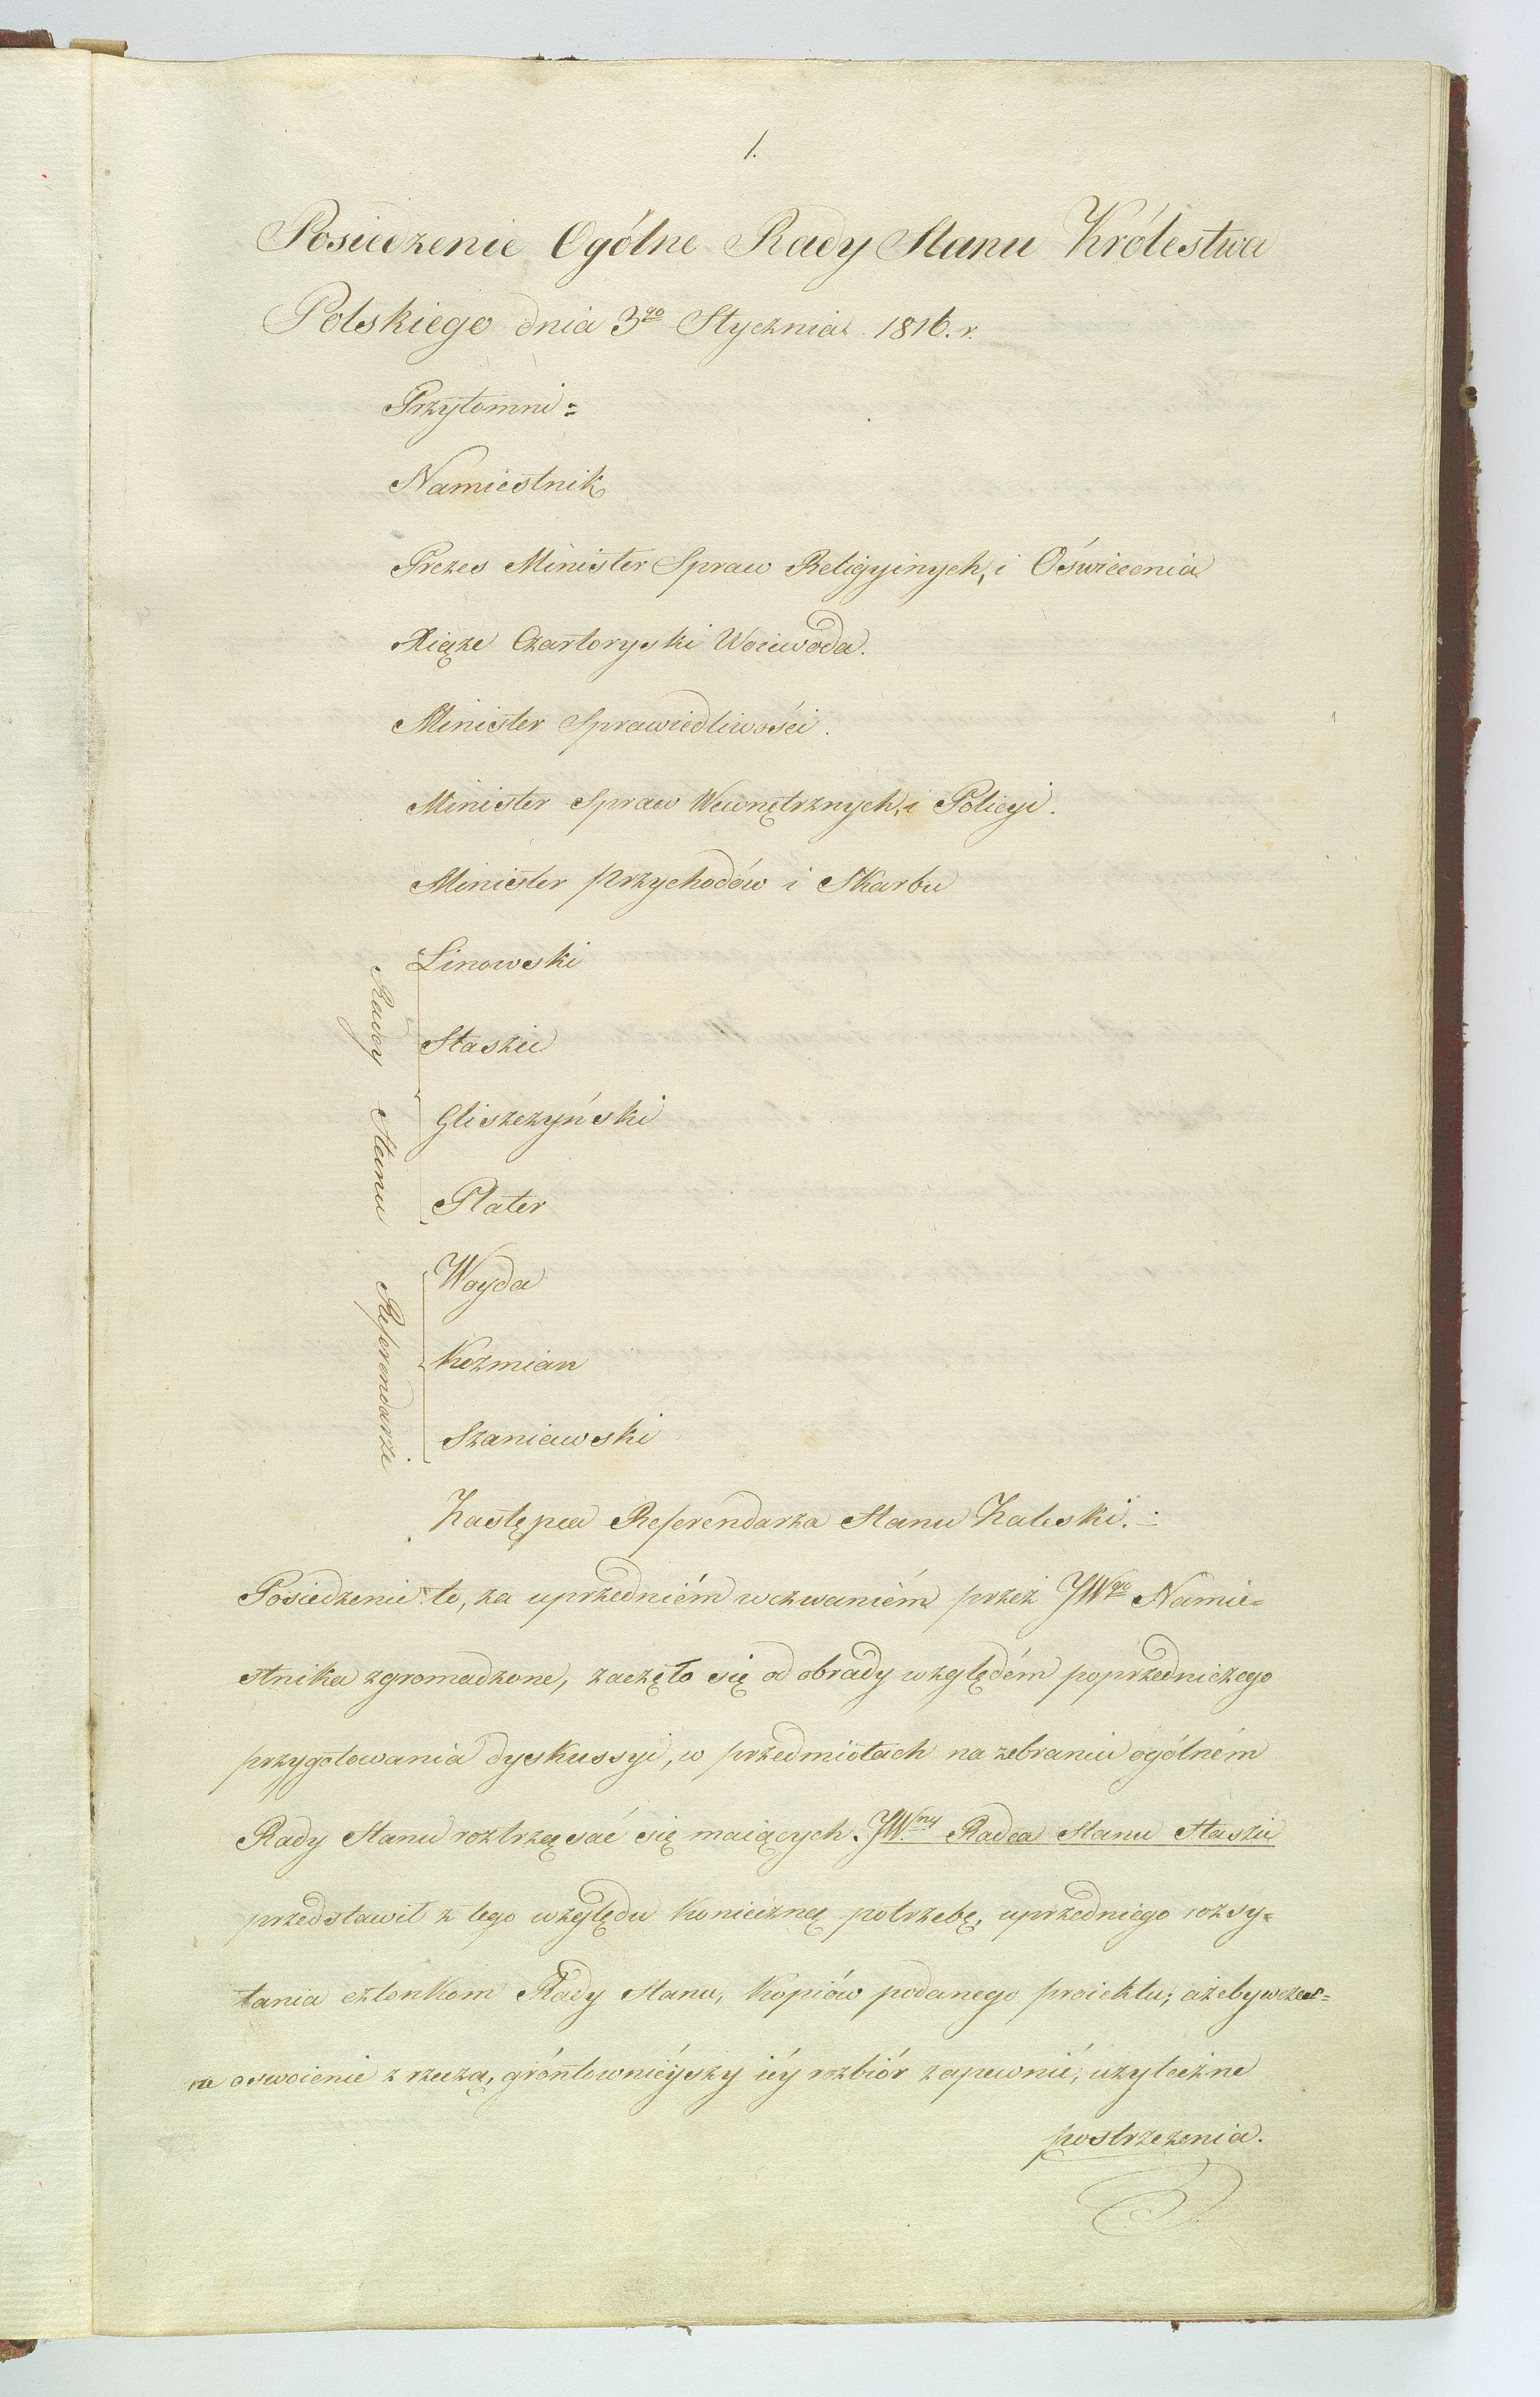 1.
Posiedzenie Ogólne Rady Stanu Królestwa
Polskiego dnia 3go Stycznia 1816. r.
Przytomni =
Namiestnik
Prezes Minister Spraw Religyinych, i Oświecenia
Xiąże Czartoryski Woiewoda.
Minister Sprawiedliwości.
Minister Spraw Wewnętrznych, i Policyi.
Minister przychodów i Skarbu
Radcy Stanu
Linowski
Staszic
Gliszczyński
Plater
Referendarze
Woyda
Kozmian
Szaniawski
Zastępca Referendarza Stanu Zaleski.
Posiedzenie to, za uprzedniém wezwaniém przez JWgo Namie=
stnika zgromadzone, zaczęło się od obrady względém poprzedniczego
przygotowania dyskussyi, w przedmiotach na zebraniu ogólném
Rady Stanu roztrząsać się maiących. JWny Radca Stanu Staszic
przedstawił z tego względu konieczną potrzebę, uprzedniego rozsy=
łania członkom Rady Stanu, Kopiów podanego proiektu; ażeby wczes=
ne oswoienie z rzeczą, gróntownieyszy iéy rozbiór zapewnić, użyteczne
postrzeżenia.